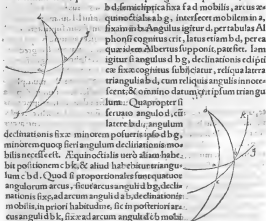 b d, semicirculus fixa f a d mobilis, arcus æ-
quinoctialis a b g, intersecet mobilem in a,
fixam in b. Angulus igitur d, per tabulas Al
phonsi cognitus erit, latus etiam b d, per ea
quæ idem Albertus supponit, patefiet. Iam
igitur si angulus d b g, declinationis eclipti
cæ fixæ cognitus subijciatur, reliqua latera
trianguli a b d, cum reliquis angulis innote-
scent, & omnino datum eripsum triangu
lum. Quapropter si
seruato angulo d, cum
latere b d, angulum
declinationis fixæ minorem posueris ipso d b g,
minorem quoque fieri angulum declinationis mo-
bilis necesse est. Æquinoctialis vero aliam habe-
bit positionem c b k, & aliud habebitur triangu-
lum c b d. Quod si proportionales sunt quatuor
angulorum arcus, sicut arcus anguli d b g, decli-
nationis fixæ, ad arcum anguli d a b, declinationis
mobilis, in priori habitudine, sic in posteriori ar-
cus anguli d b k, fixæ ad arcum anguli d c b mobi-